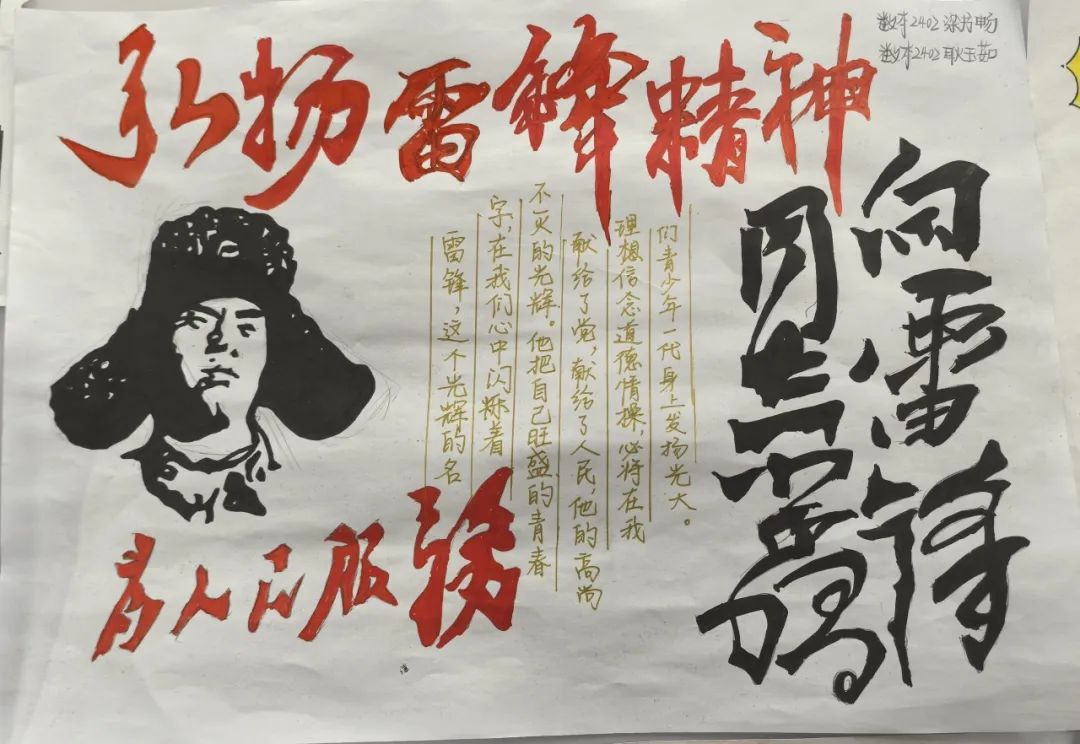 弘扬雷锋精神
数本2402 梁
数本2402 耿玉茹
雷锋,这个光辉的名
字,在我们心中闪烁着
不灭的光辉。他把自己旺盛的青春
献给了党,献给了人民,他的高尚
理想信念道德情操,必将在我
们青少年一代身上发扬光大。
向雷锋
同志
为人民服务